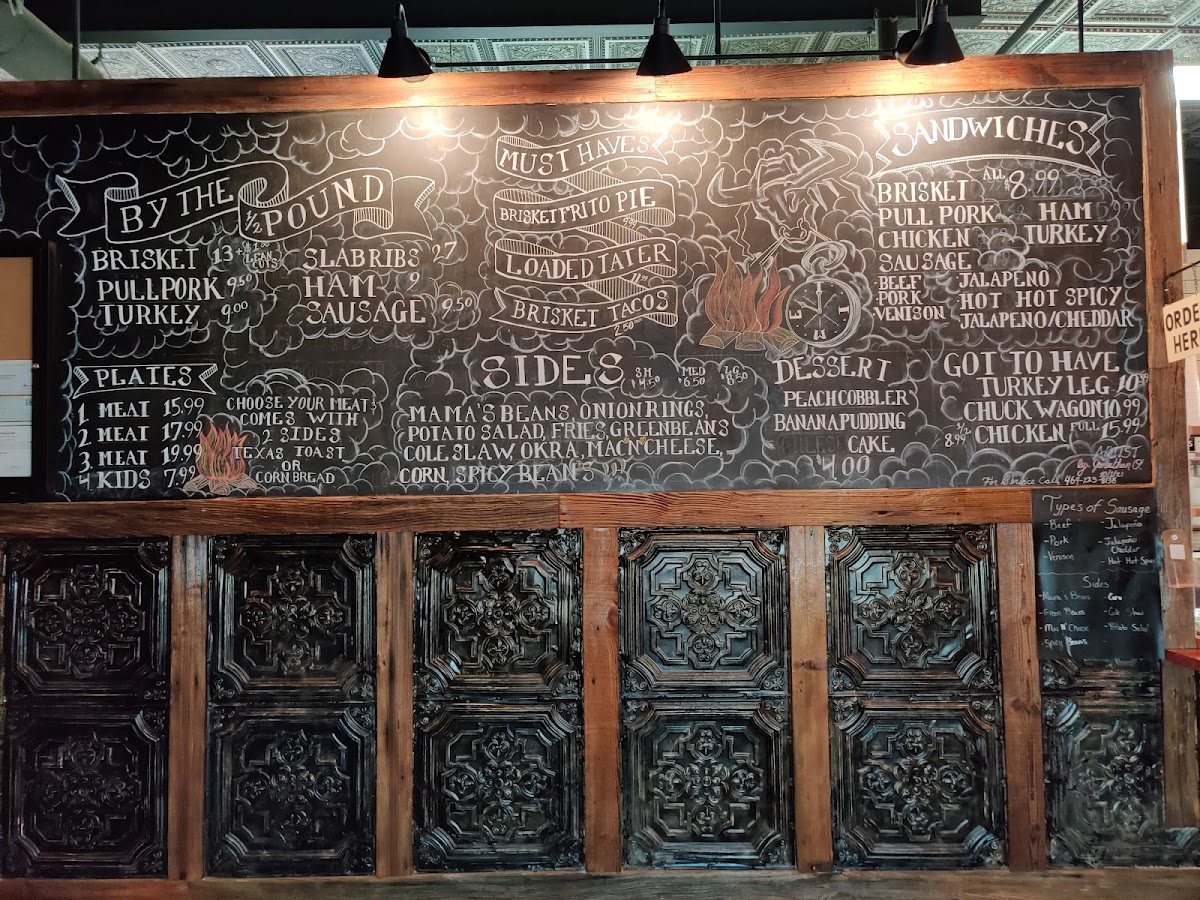 BY THE 1/2 POUND
BRISKET 13 + $1.00 LEAN CUTS
PULL PORK 9.50
TURKEY 9.00
SLAB RIBS 27
HAM 9
SAUSAGE 9.50
MUST HAVES
BRISKET FRITO PIE
LOADED TATER
BRISKET TACOS
2.50
SANDWICHES
ALL $8.99
BRISKET
PULL PORK
CHICKEN
SAUSAGE
HAM
TURKEY
BEEF
PORK
VENISON
JALAPENO
HOT HOT SPICY
JALAPENO/CHEDDAR
PLATES
1. MEAT 15.99
2. MEAT 17.99
3. MEAT 19.99
4. KIDS 7.99
CHOOSE YOUR MEATS
COMES WITH
2 SIDES
TEXAS TOAST
OR
CORN BREAD
SIDES SM $4.50 MED $6.50 LG $8.50
MAMA'S BEANS, ONION RINGS,
POTATO SALAD, FRIES, GREEN BEANS
COLE SLAW, OKRA, MAC'N CHEESE,
CORN, SPICY BEANS
DESSERT
PEACH COBBLER
BANANA PUDDING
CAKE
$4.00
GOT TO HAVE
TURKEY LEG 10.99
CHUCK WAGON 10.99
1/2 8.99 CHICKEN FULL 15.99
ARTIST
by: Jonathan
For Service Call
ORDE
HER
Types of Sausage
- Beef
- Pork
- Venison
- Jalapeño
- Jalapeño
Cheddar
- Hot Hot Spicy
Sides
- Mama's Beans
- Green Beans
- Mac N' Cheese
Spicy Beans
- Corn
- Cole Slaw
- Potato Salad